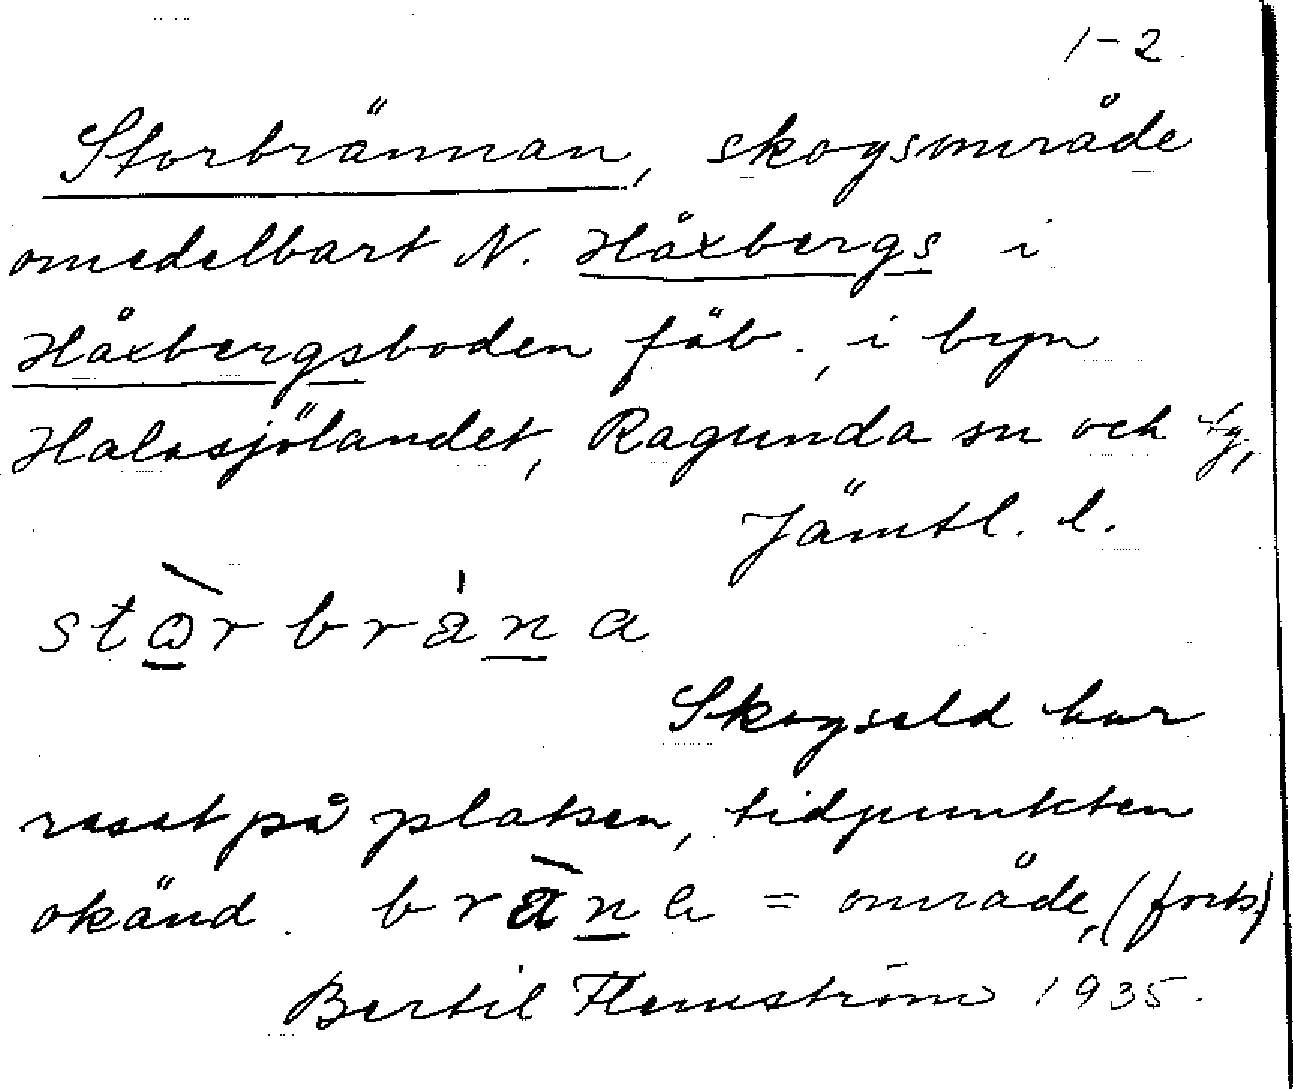 1-2
Storbrännan, skogsområde
omedelbart N. Håxbergs i
Håxbergsboden fäb., i byn
Halasjölandet, Ragunda sn och tg,
Jämtl. l.
stɷ̀rbrána
Skogseld har
rasat på platsen, tidpunkten
okänd. bràna = område, (forts.)
Bertil Flemström 1935.